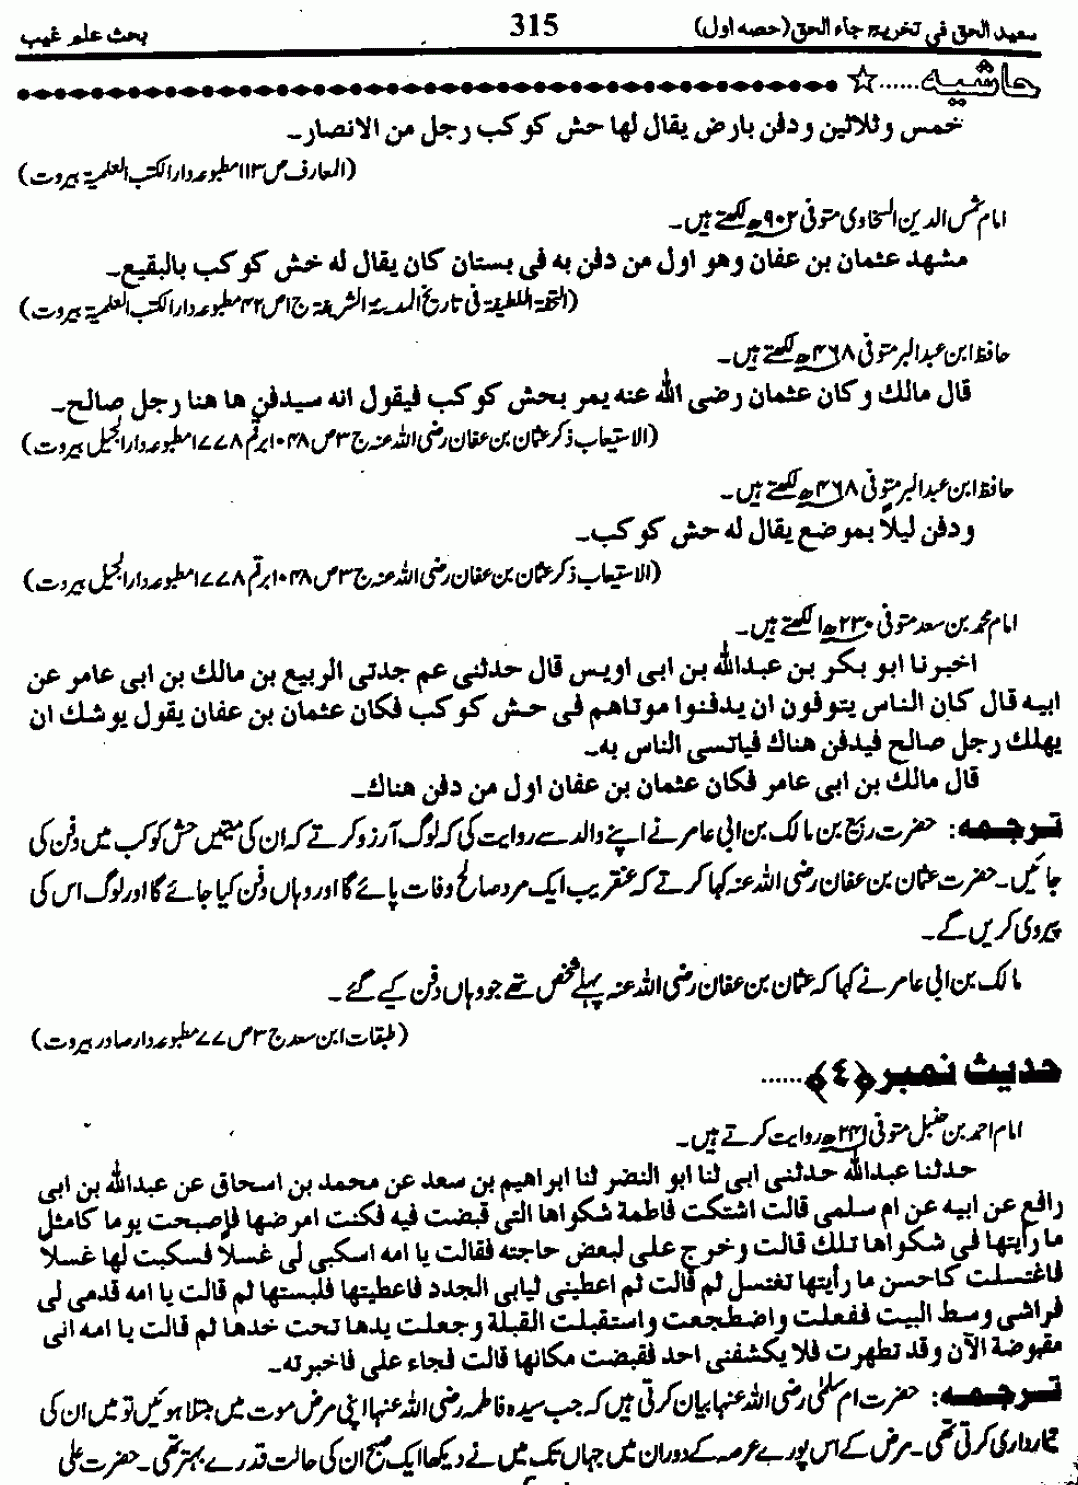 سعید الحق فی تخریج جاء الحق (حصہ اول) 315 بحث علم غیب
حاشیہ......☆
خمس وثلاثین ودفن بارض یقال لها حش کوکب رجل من الانصار۔
(المعارف ص ۱۱۳ مطبوعہ دار الکتب العلمیۃ بیروت)
امام شمس الدین السخاوی متوفی ۹۰۲ھ لکھتے ہیں۔
مشهد عثمان بن عفان وهو اول من دفن به فی بستان کان یقال له خش کوکب بالبقیع۔
(التحفۃ اللطیفۃ فی تاریخ المدینۃ الشریفۃ ج ۱ ص ۴۲ مطبوعہ دار الکتب العلمیۃ بیروت)
حافظ ابن عبدالبر متوفی ۴۶۸ھ لکھتے ہیں۔
قال مالك وکان عثمان رضی الله عنه یمر بحش کوکب فیقول انه سیدفن ها هنا رجل صالح۔
(الاستیعاب ذکر عثمان بن عفان رضی اللہ عنہ ج ۳ ص ۱۰۴۸ برقم ۱۷۷۸ مطبوعہ دار الجیل بیروت)
حافظ ابن عبدالبر متوفی ۴۶۸ھ لکھتے ہیں۔
ودفن لیلاً بموضع یقال له حش کوکب۔
(الاستیعاب ذکر عثمان بن عفان رضی اللہ عنہ ج ۳ ص ۱۰۴۸ برقم ۱۷۷۸ مطبوعہ دار الجیل بیروت)
امام محمد بن سعد متوفی ۲۳۰ھ لکھتے ہیں۔
اخبرنا ابو بکر بن عبدالله بن ابی اویس قال حدثنی عم جدتی الربیع بن مالك بن ابی عامر عن
ابیه قال کان الناس یتوفون ان یدفنوا موتاهم فی حش کوکب فکان عثمان بن عفان یقول یوشك ان
یهلك رجل صالح فیدفن هناك فیاتسی الناس به۔
قال مالك بن ابی عامر فکان عثمان بن عفان اول من دفن هناك۔
ترجمہ: حضرت ربیع بن مالک بن ابی عامر نے اپنے والد سے روایت کی کہ لوگ آرزو کرتے کہ ان کی میتیں حش کوکب میں دفن کی
جائیں۔ حضرت عثمان بن عفان رضی اللہ عنہ کہا کرتے کہ عنقریب ایک مرد صالح وفات پائے گا اور وہاں دفن کیا جائے گا اور لوگ اس کی
پیروی کریں گے۔
مالک بن ابی عامر نے کہا کہ عثمان بن عفان رضی اللہ عنہ پہلے شخص تھے جو وہاں دفن کیے گئے۔
(طبقات ابن سعد ج ۳ ص ۷۷ مطبوعہ دار صادر بیروت)
حدیث نمبر ﴿٤﴾......
امام احمد بن حنبل متوفی ۲۴۱ھ روایت کرتے ہیں۔
حدثنا عبدالله حدثنی ابی ثنا ابو النضر ثنا ابراهیم بن سعد عن محمد بن اسحاق عن عبدالله بن ابی
رافع عن ابیه عن ام سلمی قالت اشتکت فاطمة شکواها التی قبضت فیه فکنت امرضها فاصبحت یوما کامثل
ما رأیتها فی شکواها تلك قالت وخرج علی لبعض حاجته فقالت یا امه اسکبی لی غسلاً فسکبت لها غسلا
فاغتسلت کاحسن ما رأیتها تغتسل ثم قالت ثم اعطینی ثیابی الجدد فاعطیتها فلبستها ثم قالت یا امه قدمی لی
فراشی وسط البیت ففعلت واضطجعت واستقبلت القبلة وجعلت یدها تحت خدها ثم قالت یا امه انی
مقبوضة الآن وقد تطهرت فلا یکشفنی احد فقبضت مکانها قالت فجاء علی فاخبرته۔
ترجمہ: حضرت ام سلمیٰ رضی اللہ عنہا بیان کرتی ہیں کہ جب سیدہ فاطمہ رضی اللہ عنہا اپنی مرض موت میں مبتلا ہوئیں تو میں ان کی
تیمارداری کرتی تھی۔ مرض کے اس پورے عرصہ کے دوران میں جہاں تک میں نے دیکھا ایک صبح ان کی حالت قدرے بہتر تھی۔ حضرت علی